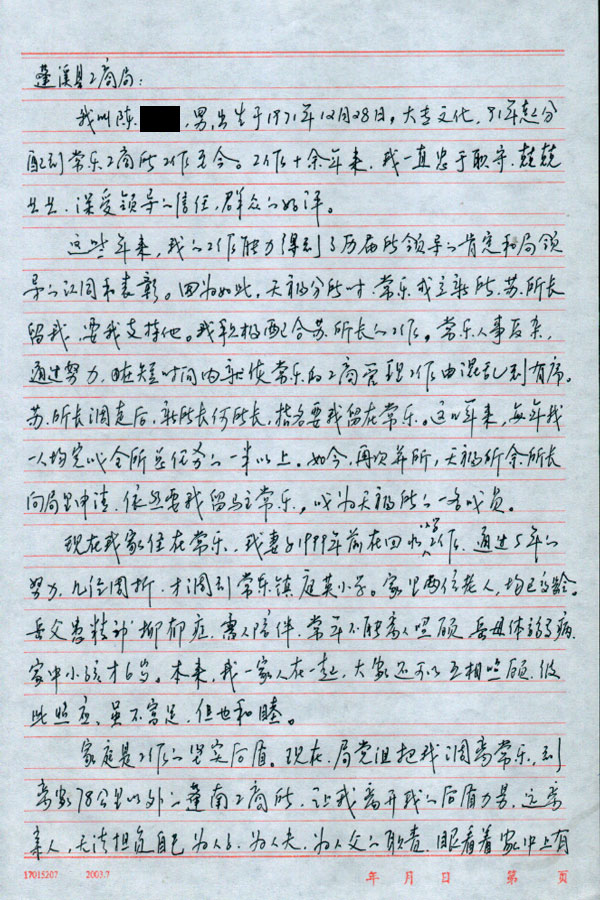 蓬溪县工商局：
我叫陈，男，出生于1971年12月28日，大专文化，91年起分
配到常乐工商所工作至今。工作十余年来，我一直忠于职守、兢兢
业业，深受领导的信任，群众的好评。
这些年来，我的工作能力得到了历届所领导的肯定和局领
导的认同和表彰。因为如此，天福分所时，常乐成立新所，苏所长
留我，要我支持他。我积极配合苏所长的工作。常乐人事复杂，
通过努力，在短时间内就使常乐的工商管理工作由混乱到有序。
苏所长调走后，新所长何所长，指名要我留在常乐。这些年来，每年我
一人均完成全所总任务的一半以上。如今，再次并所，天福所余所长
向局里申请，依然要我留驻常乐，成为天福所的一名成员。
现在我家住在常乐，我妻子1999年前在回水小学工作，通过5年的
努力，几经周折，才调到常乐镇庭英小学。家里两位老人，均已高龄。
岳父患精神抑郁症，需人陪伴，常年不能离人照顾，岳母体弱多病，
家中小孩才6岁。本来，我一家人在一起，大家还可以互相照顾，彼
此照应，虽不富足，但也和睦。
家庭是工作的坚实后盾。现在，局党组把我调离常乐，到
离家78公里以外的蓬南工商所，让我离开我的后盾力量，远离
亲人，无法担负自己为人子、为人夫、为人父的职责，眼看着家中上有
17015207 2003.7 年 月 日 第 页